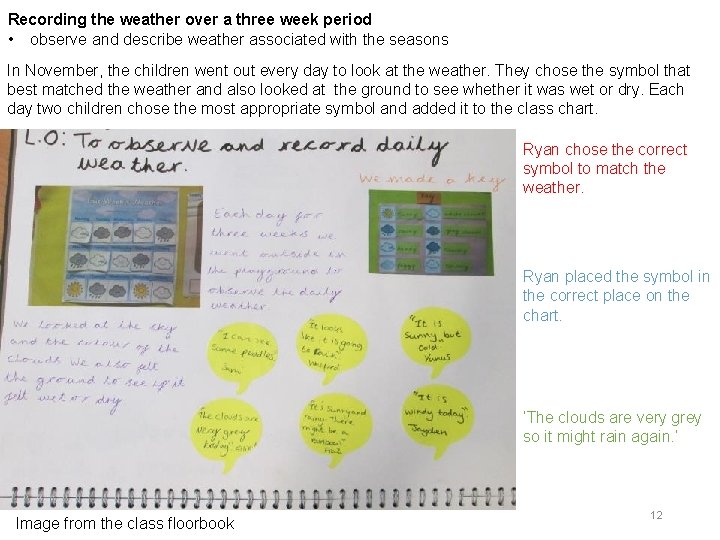 Recording the weather over a three week period
• observe and describe weather associated with the seasons
In November, the children went out every day to look at the weather. They chose the symbol that
best matched the weather and also looked at the ground to see whether it was wet or dry. Each
day two children chose the most appropriate symbol and added it to the class chart.
L.O: To observe and record daily
weather.
We made a key
Each day for
three weeks we
went outside in
the playground to
observe the daily
weather.
We looked at the sky
and the colour of the
clouds we also felt
the ground to see if it
felt wet or dry
"I can see
some puddles"
"It looks
like it is going
to rain"
"It is
sunny but
cold
Yunus
"The clouds are
very grey
today"
"It's sunny and
rainy. There
might be a
rainbow"
"It is
windy today"
Jayden
Ryan chose the correct
symbol to match the
weather.
Ryan placed the symbol in
the correct place on the
chart.
'The clouds are very grey
so it might rain again.'
Image from the class floorbook
12